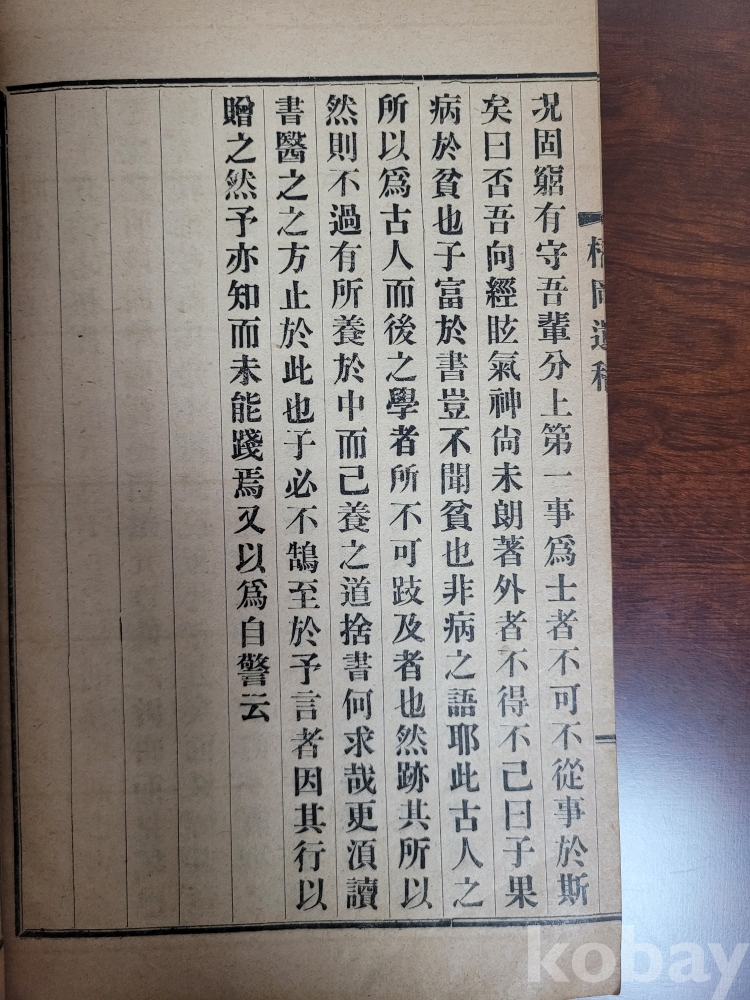 岡遺稿
况固窮有守吾輩分上第一事爲士者不可不從事於斯
矣曰否吾向經眩氣神尙未朗著外者不得不已曰子果
病於貧也子富於書豈不聞貧也非病之語耶此古人之
所以爲古人而後之學者所不可跂及者也然跡其所以
然則不過有所養於中而已養之道捨書何求哉更湏讀
書醫之之方止於此也子必不鵠至於予言者因其行以
贈之然予亦知而未能踐焉又以爲自警云
kobay